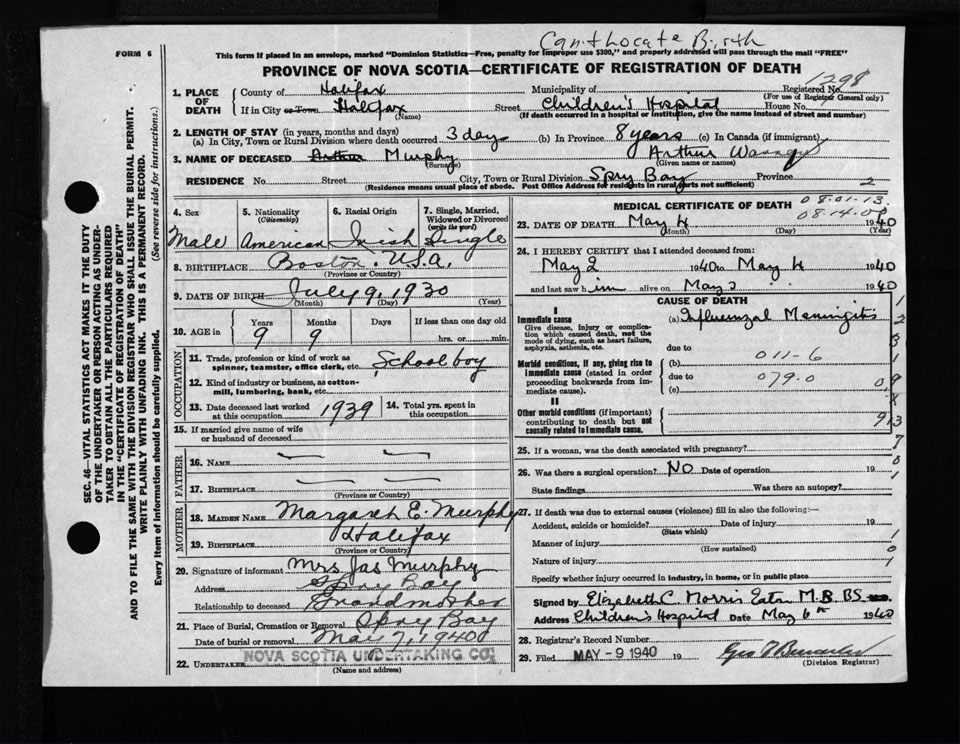 Can't Locate Birth
FORM 6
This form if placed in an envelope, marked "Dominion Statistics—Free, penalty for improper use $300," and properly addressed will pass through the mail "FREE"
PROVINCE OF NOVA SCOTIA—CERTIFICATE OF REGISTRATION OF DEATH
1298
1. PLACE OF DEATH
County of Halifax Municipality of Registered No.
(For use of Registrar General only)
If in City or Town Halifax Street Children's Hospital House No.
(Name) (If death occurred in a hospital or institution, give the name instead of street and number)
2. LENGTH OF STAY (in years, months and days)
(a) In City, Town or Rural Division where death occurred 3 days (b) In Province 8 years (c) In Canada (if immigrant)
3. NAME OF DECEASED Arthur Murphy Arthur
(Surname) (Given name or names)
RESIDENCE No. Street City, Town or Rural Division Spry Bay Province 2
(Residence means usual place of abode. Post Office Address for residents in rural parts not sufficient)
4. Sex 5. Nationality 6. Racial Origin 7. Single, Married, Widowed or Divorced
(Citizenship) (write the word)
Male American Irish Single
8. BIRTHPLACE Boston. U.S.A.
(Province or Country)
9. DATE OF BIRTH July 9, 1930
(Month) (Day) (Year)
10. AGE in Years Months Days If less than one day old
9 9 hrs. or min.
OCCUPATION
11. Trade, profession or kind of work as spinner, teamster, office clerk, etc. School boy
12. Kind of industry or business, as cotton-mill, lumbering, bank, etc.
13. Date deceased last worked at this occupation 1939 14. Total yrs. spent in this occupation
15. If married give name of wife or husband of deceased
FATHER
16. NAME
17. BIRTHPLACE
(Province or Country)
MOTHER
18. MAIDEN NAME Margaret E. Murphy
19. BIRTHPLACE Halifax
(Province or Country)
20. Signature of informant Mrs Jas Murphy
Address Spry Bay
Relationship to deceased Grandmother
21. Place of Burial, Cremation or Removal Spry Bay
Date of burial or removal May 7, 1940
22. UNDERTAKER NOVA SCOTIA UNDERTAKING CO.
(Name and address)
MEDICAL CERTIFICATE OF DEATH
08.01.13
08.14.01
23. DATE OF DEATH May 4 1940
(Month) (Day) (Year)
24. I HEREBY CERTIFY that I attended deceased from:
May 2 1940 to May 4 1940
and last saw him alive on May 2 1940
CAUSE OF DEATH
I
Immediate cause
Give disease, injury or complication which caused death, not the mode of dying, such as heart failure, asphyxia, asthenia, etc.
(a) Influenzal Meningitis
due to
Morbid conditions, if any, giving rise to immediate cause (stated in order proceeding backwards from immediate cause).
(b) 011-6
due to 079.0
(c)
II
Other morbid conditions (if important) contributing to death but not causally related to immediate cause.
25. If a woman, was the death associated with pregnancy?
26. Was there a surgical operation? NO Date of operation 19
State findings Was there an autopsy?
27. If death was due to external causes (violence) fill in also the following:—
Accident, suicide or homicide? Date of injury 19
(State which)
Manner of injury
(How sustained)
Nature of injury
Specify whether injury occurred in industry, in home, or in public place
Signed by Elizabeth C. Morris Eaton M.B. BS.
Address Children's Hospital Date May 6th 1940
28. Registrar's Record Number
29. Filed MAY -9 1940 19
(Division Registrar)
SEC. 46—VITAL STATISTICS ACT MAKES IT THE DUTY
OF THE UNDERTAKER OR PERSON ACTING AS UNDER-
TAKER TO OBTAIN ALL THE PARTICULARS REQUIRED
IN THE "CERTIFICATE OF REGISTRATION OF DEATH"
AND TO FILE THE SAME WITH THE DIVISION REGISTRAR WHO SHALL ISSUE THE BURIAL PERMIT.
WRITE PLAINLY WITH UNFADING INK. THIS IS A PERMANENT RECORD.
Every item of information should be carefully supplied. (See reverse side for instructions.)